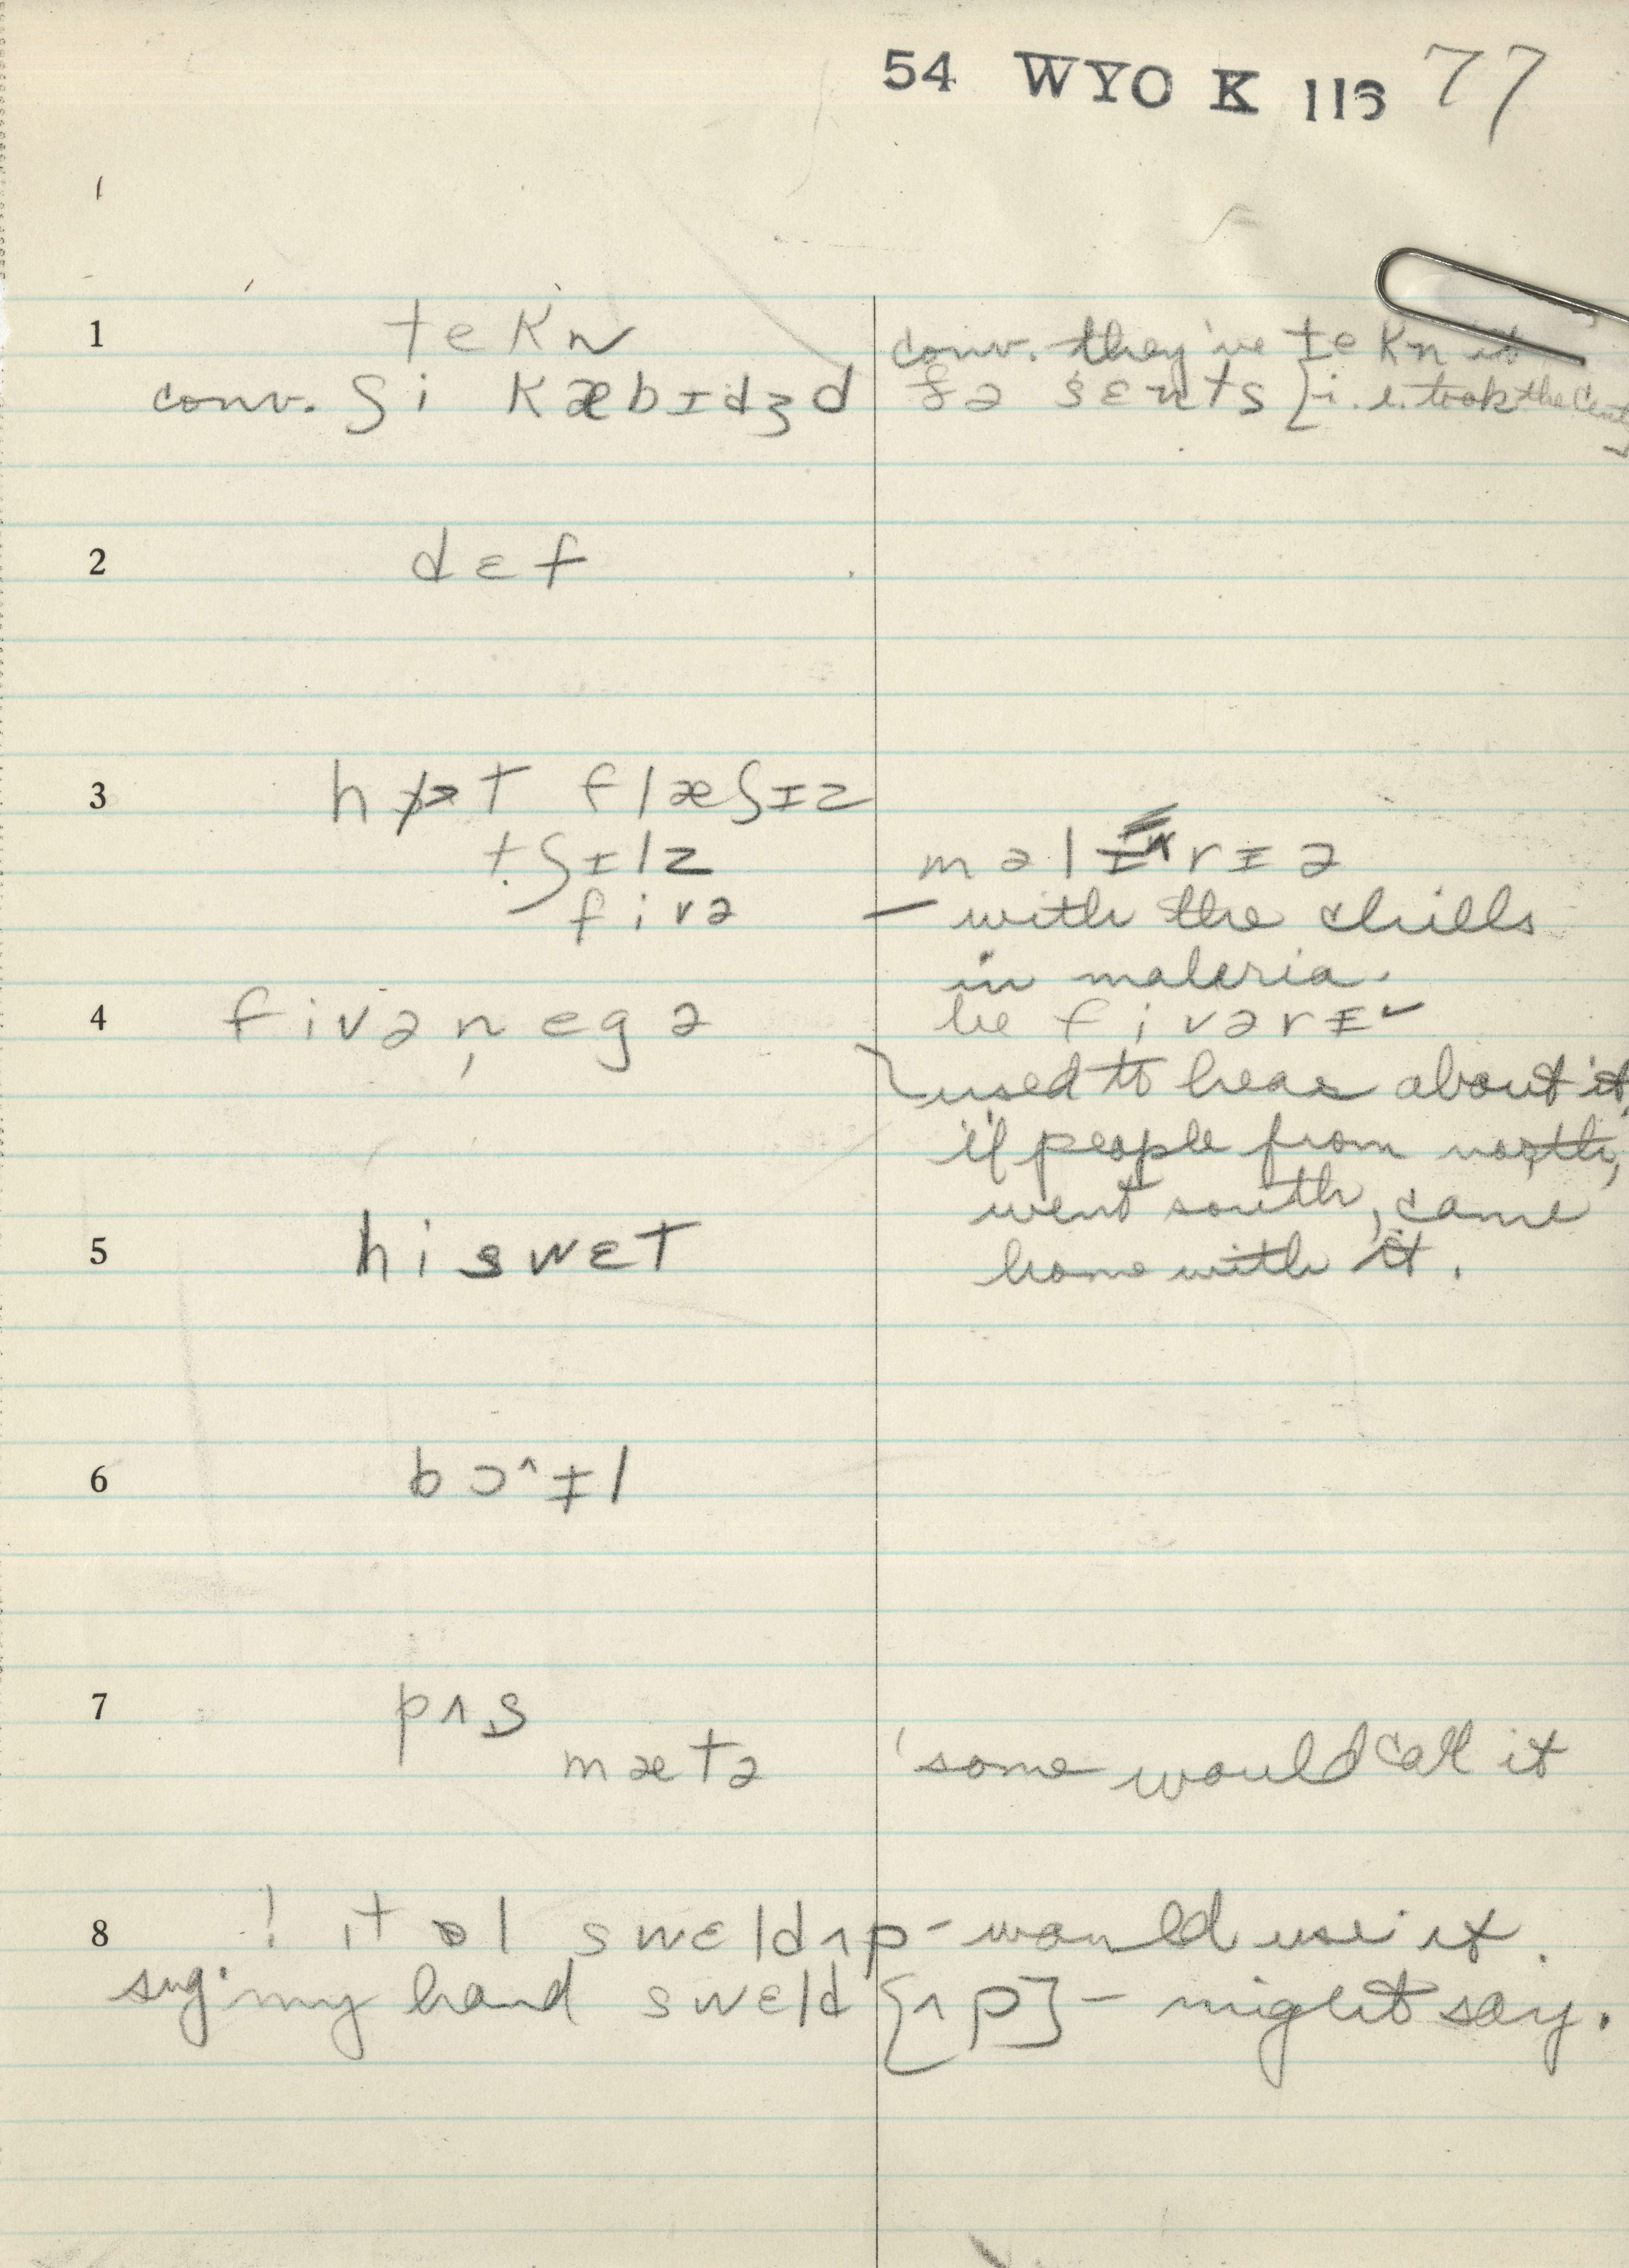 54 WYO K 113 77
1 tekn
conv. they've tekn it
conv. ʃi kæbɪdʒd
fə sɛnts [i.e. took the cent
2 dɛf
3 hɒt flæʃɪz
tʃɪlz
məlɛrɪə
fivə
— with the chills
in malaria.
4 fivən̩egə
be fivərɪ
used to hear about it,
if people from north,
went south, came
home with it.
5 hi swɛt
6 bɔ^ɪl
7 pʌs
mætə
'some would call it
8 ! ɪt ɒl swɛldʌp - would use it.
sug. my hand swɛld [ʌp] - might say.